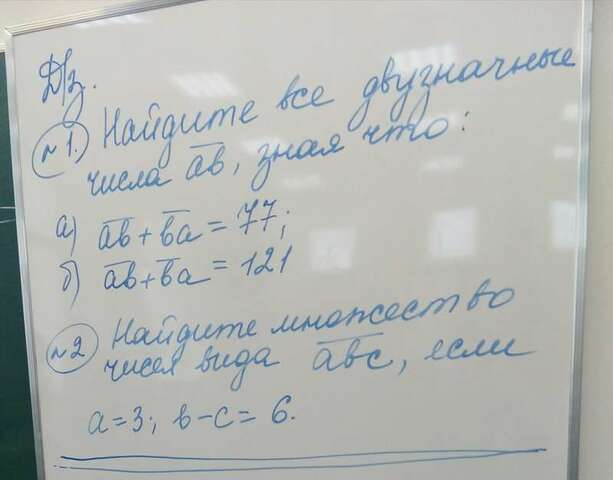 Д/з.
№1. Найдите все двузначные
числа ab, зная что:
а) ab + ba = 77;
б) ab + ba = 121
№2 Найдите множество
чисел вида abc, если
a=3; b-c=6.